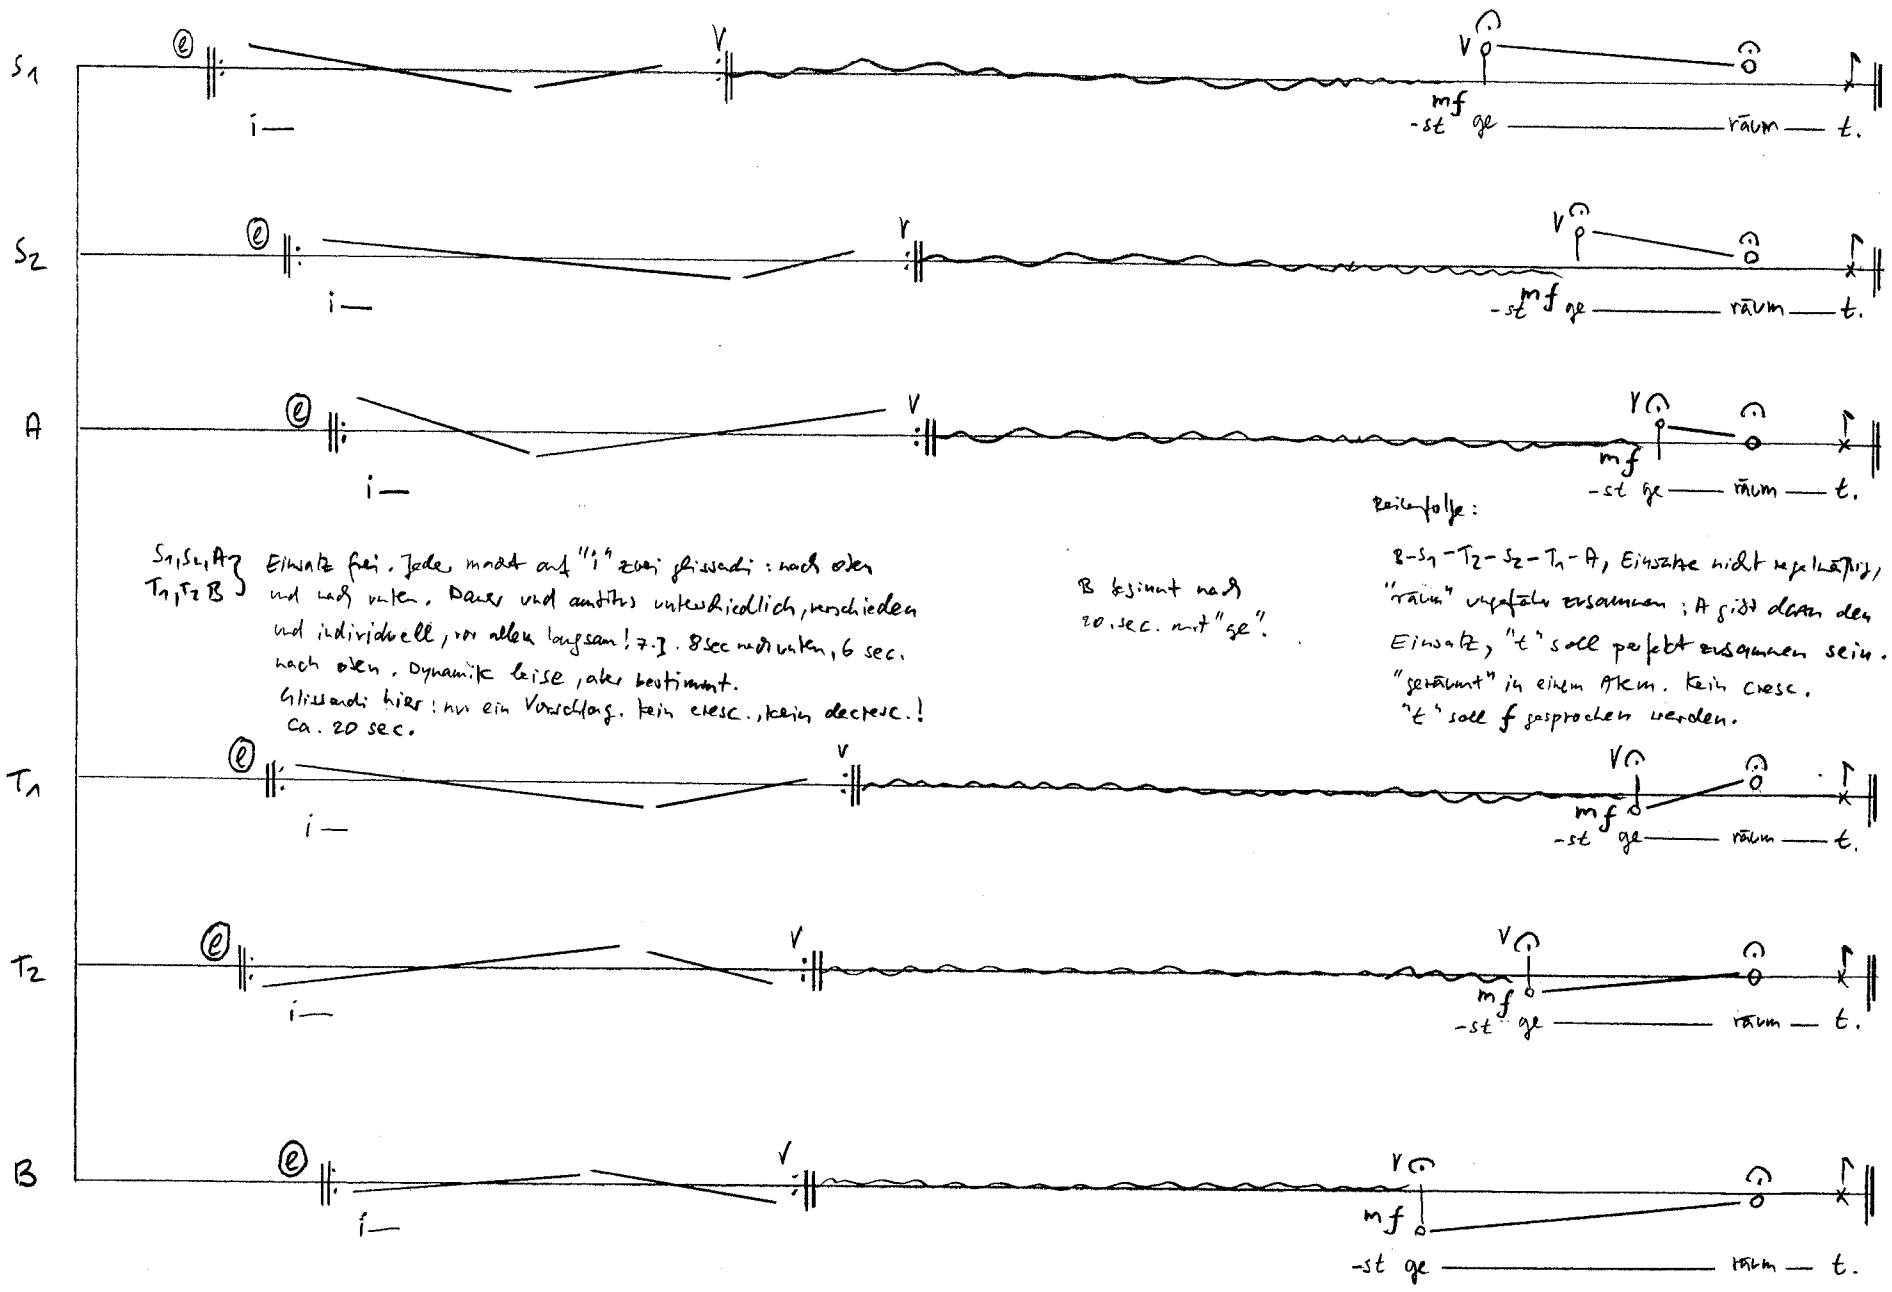 S1 e V V
i—
mf
-st ge räum t.
S2 e V V
i—
mf
-st ge räum t.
A e V V
i—
mf
-st ge räum t.
Reihenfolge:
S1, S2, A } Einsatz frei. Jeder macht auf "i" zwei glissandi: nach oben
T1, T2 B und nach unten. Dauer und ambitus unterschiedlich, verschieden
und individuell, vor allem langsam! z.B. 8 sec nach unten, 6 sec.
nach oben. Dynamik leise, aber bestimmt.
Glissandi hier: nur ein Vorschlag. Kein cresc., kein decresc.!
Ca. 20 sec.
B beginnt nach
20. sec. mit "ge".
B-S1-T2-S2-T1-A, Einsätze nicht regelmäßig,
"räum" ungefähr zusammen; A gibt dann den
Einsatz, "t" soll perfekt zusammen sein.
"geräumt" in einem Atem. Kein cresc.
"t" soll f gesprochen werden.
T1 e V V
i—
mf
-st ge räum t.
T2 e V V
i—
mf
-st ge räum t.
B e V V
i—
mf
-st ge räum t.